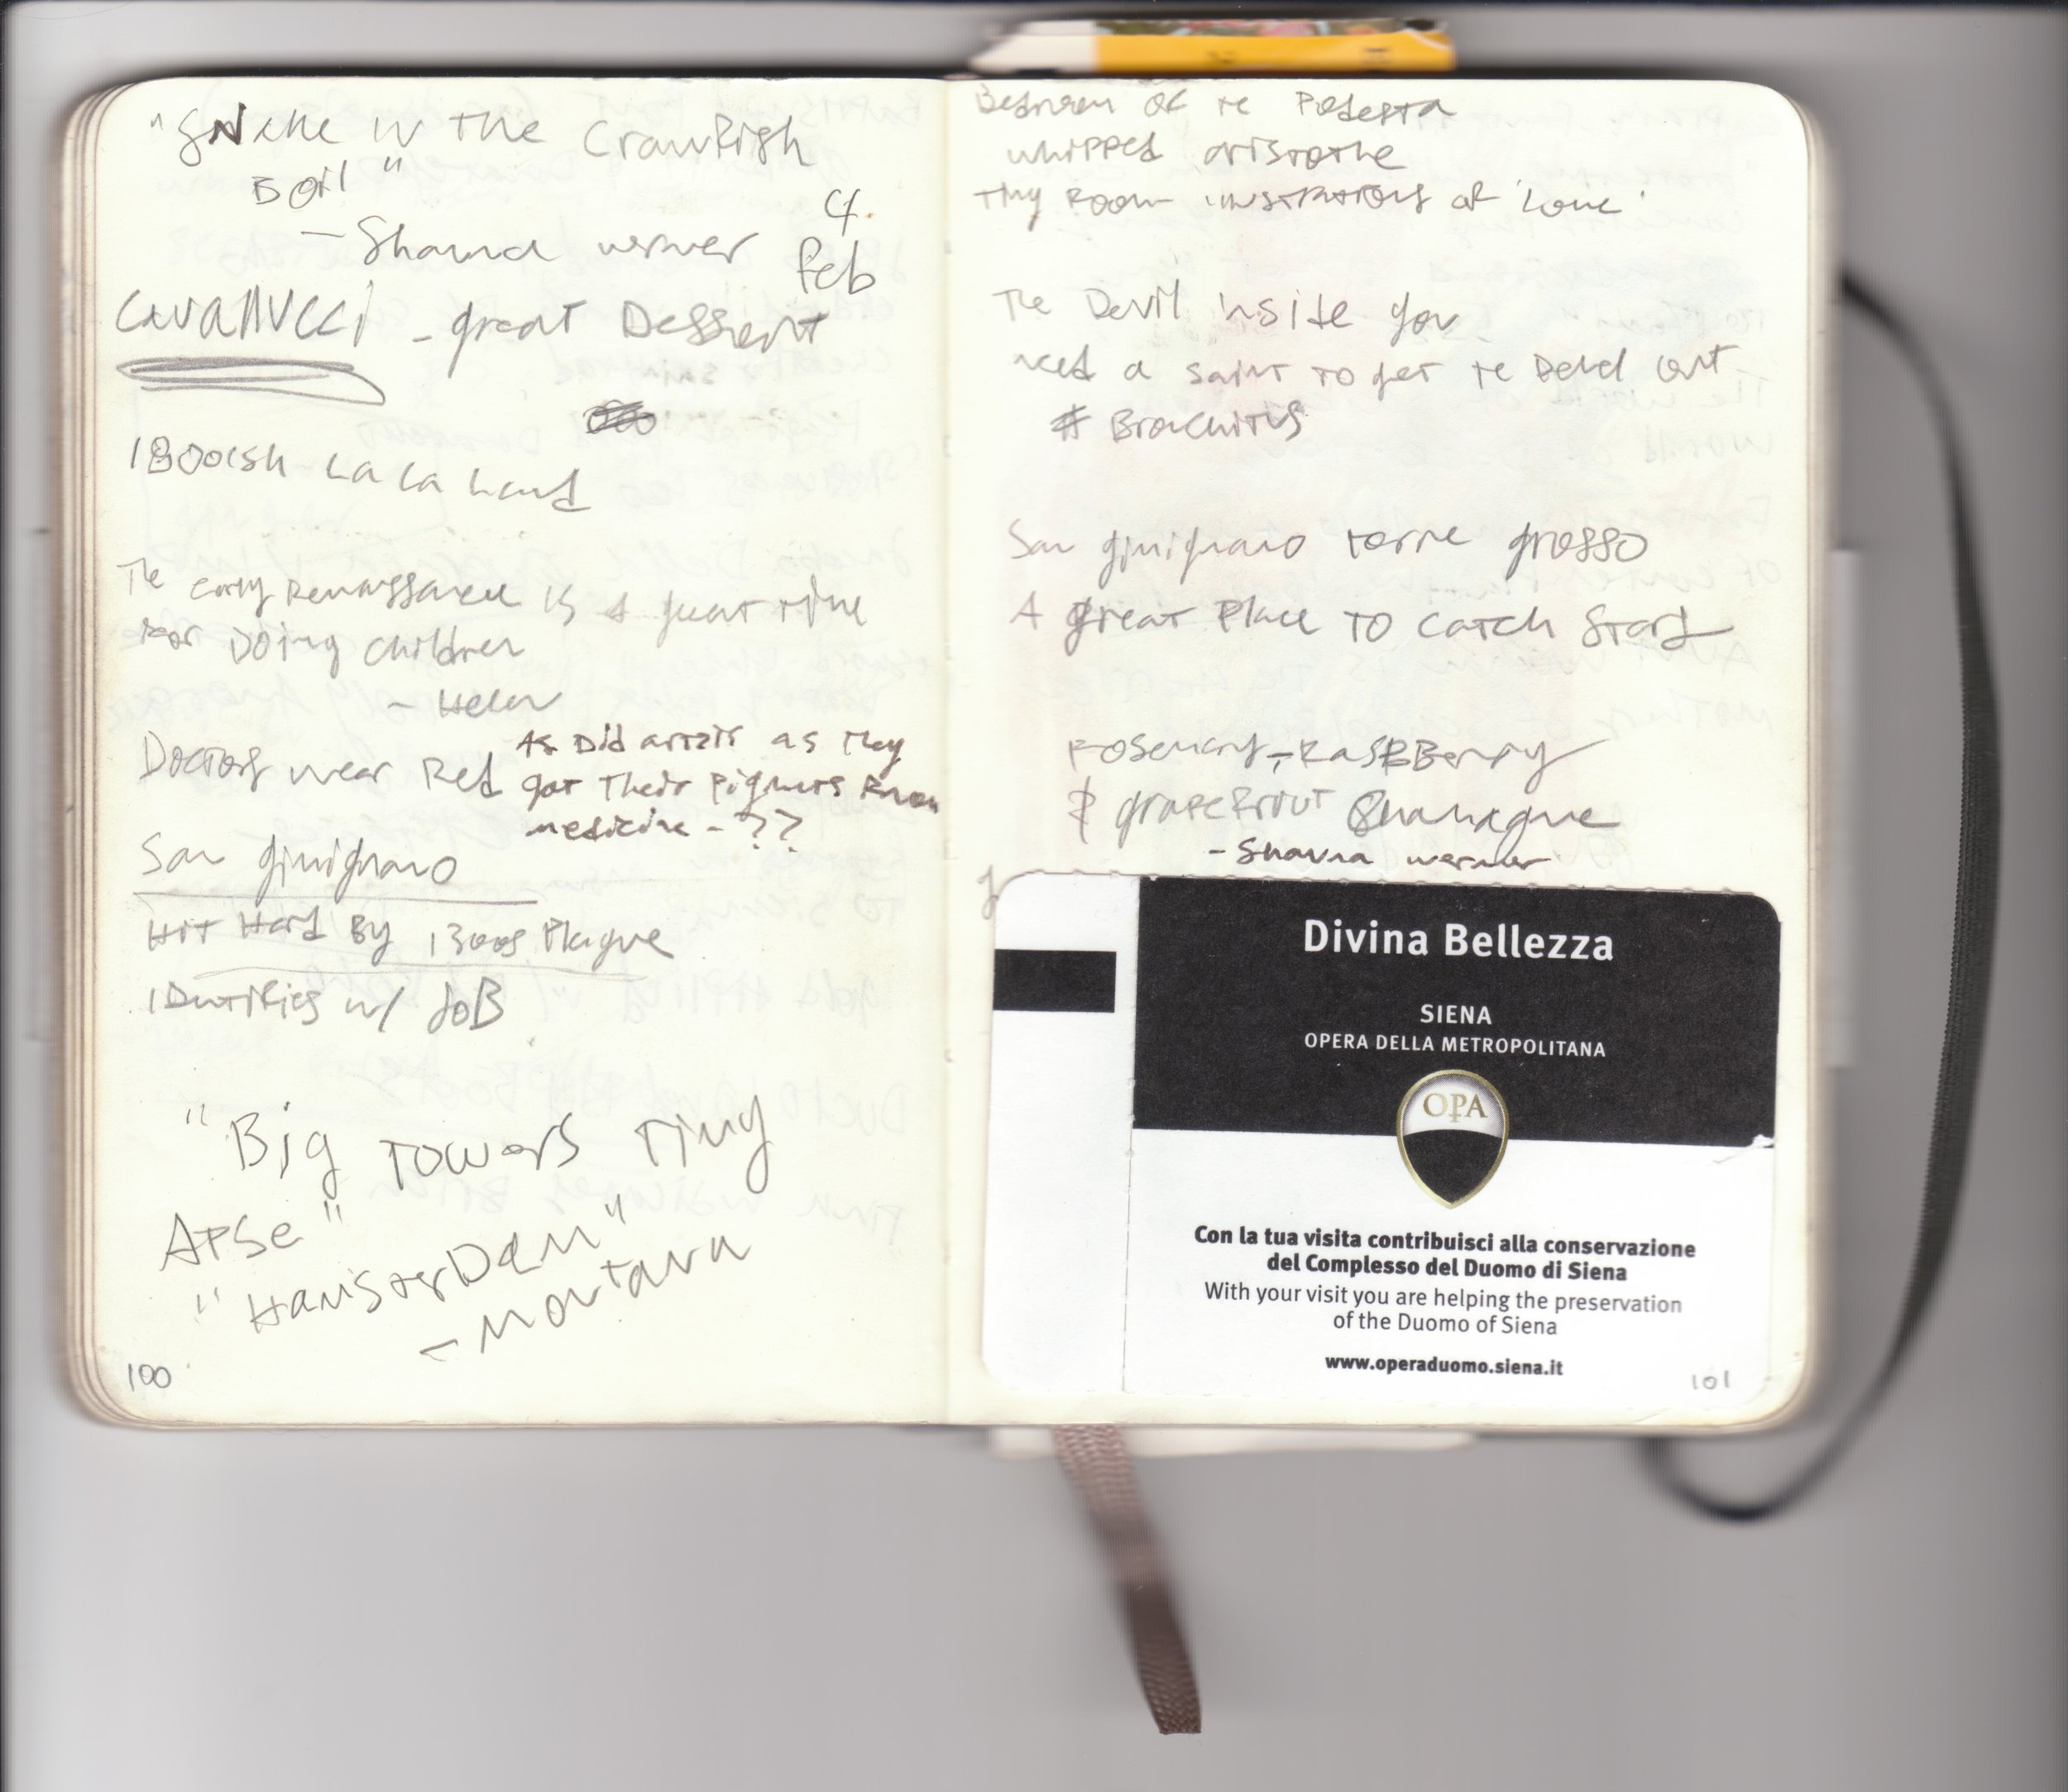 "Snake in the Crawfish
Boil"
- Shauna werner
4.
Feb
Cavallucci - great Dessert
1800ish La La Land
The early Renaissance is a great time
For Doing children
- Helen
Doctors wear Red
As Did artists as They
got Their Pigments From
medicine - ??
San gimignano
Hit Hard By 1300s Plague
IDentifies w/ JoB
"Big Towers Tiny
Apse"
"HamsterDam"
- Montana
100
Bedroom of Te Podesta
whipped aristotle
Tiny Room illustrations of 'Love'
Te Devil inside you
need a saint to get te Devil out
# Bronchitis
San gimignano torre grosso
A great Place To catch Stars
Rosemary, RaspBerry
& grapefruit Champagne
- Shauna werner
Divina Bellezza
SIENA
OPERA DELLA METROPOLITANA
OPA
Con la tua visita contribuisci alla conservazione
del Complesso del Duomo di Siena
With your visit you are helping the preservation
of the Duomo of Siena
www.operaduomo.siena.it
101